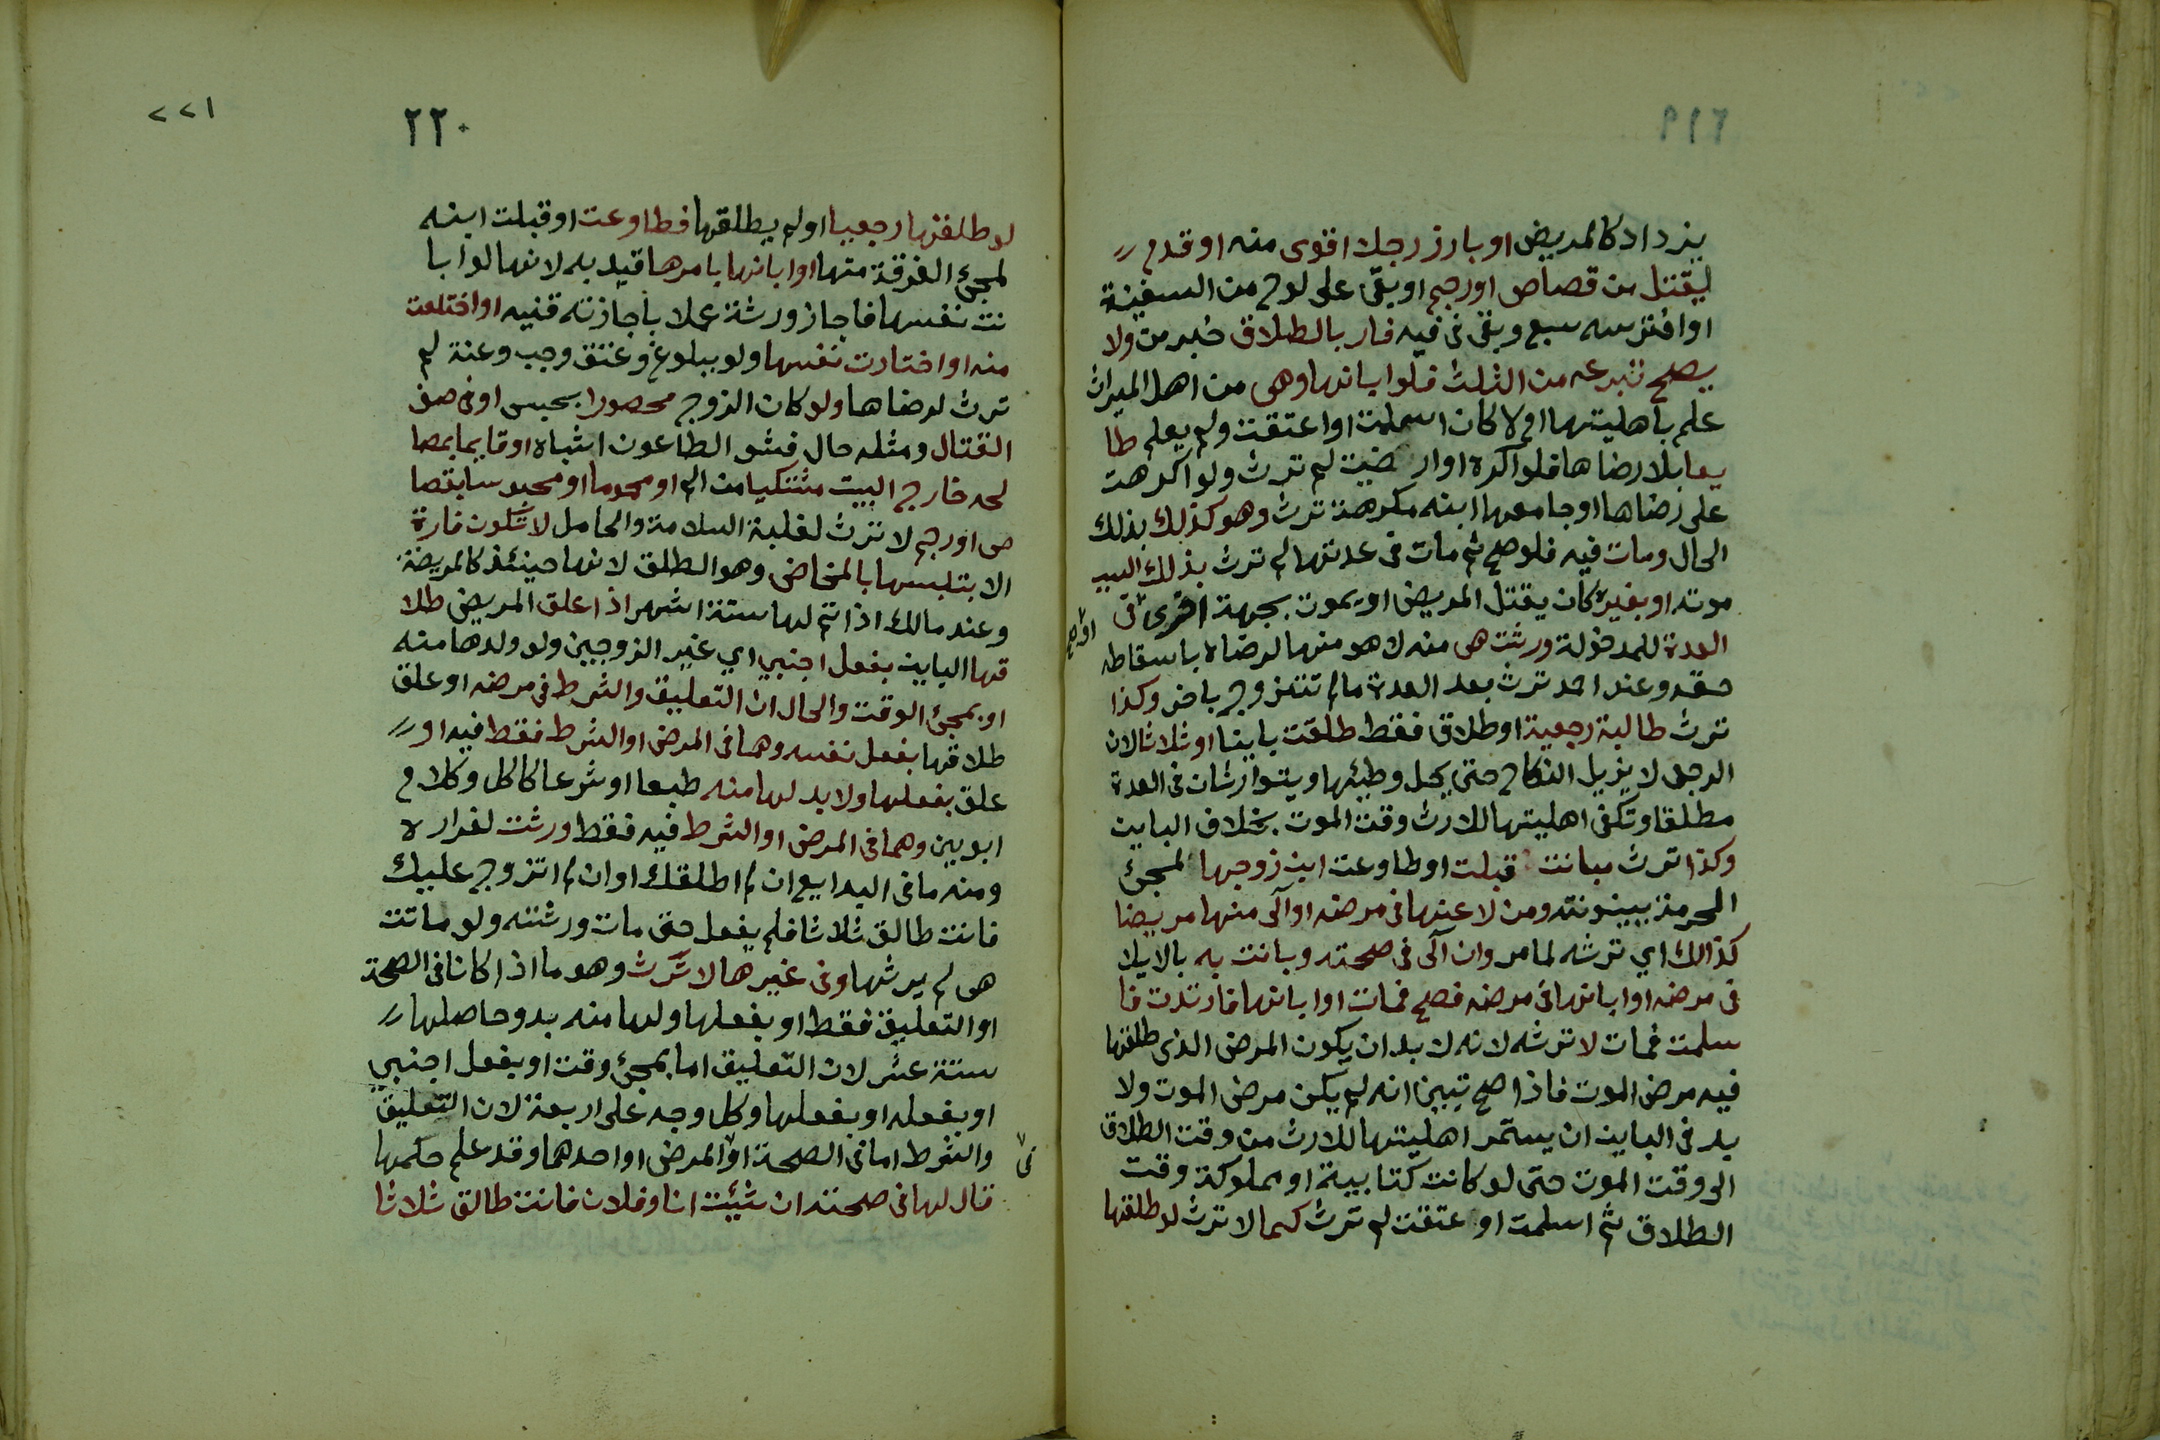 يزداد كالمريض او بارز رجلا اقوى منه او قدم
ليقتل من قصاص او رجم او بقى على لوح من السفينة
او افترسه سبع وبقى فى فيه فار بالطلاق خبر من ولا
يصح تبرعه من الثلث فلو ابانها وهى من اهل الميراث
علم باهليتها ام لا كان اسلمت او اعتقت ولم يعلم طا
يعا بلا رضاها فلو اكره او ارضيت لم ترث ولو اكرهت
على رضاها او جامعها ابنه مكرهة ترث وهو كذلك بذلك
الحال ومات فيه فلو صح ثم مات فى عدتها لم ترث بذلك السبب
موته او بغيره كان يقتل المريض او يموت بجهة اخرى فى
العدة للمدخولة ورثت هى منه لا هو منها لرضاه باسقاطه
حقه وعند احمد ترث بعد العدة مالم تتزوج باخر وكذا
ترث طالبة رجعية او طلاق فقط طلقت باينا او ثلاثا لان
الرجعى لا يزيل النكاح حتى يحل وطئها ويتوارثان فى العدة
مطلقا وتكفى اهليتها للارث وقت الموت بخلاف الباين
وكذا ترث مبانة قبلت او طاوعت ابن زوجها لمجئ
الحرمة ببينونته ومن لاعنها فى مرضه او آلى منها مريضا
كذالك اي ترثه لما مر وان آلى فى صحته وبانت به بالايلا
فى مرضه او ابانها فى مرضه فصح فمات او ابانها فارتدت فا
سلمت فمات لا ترثه لانه لا بد ان يكون المرض الذى طلقها
فيه مرض الموت فاذا صح تبين انه لم يكن مرض الموت ولا
بد فى الباين ان يستمر اهليتها للارث من وقت الطلاق
الى وقت الموت حتى لو كانت كتابية او مملوكة وقت
الطلاق ثم اسلمت او عتقت لم ترث كما لا ترث لو طلقها
٢٢١
٢٢٠
لو طلقها رجعيا او لم يطلقها فطاوعت او قبلت ابنه
لمجئ الفرقة منها او ابانها بامرها قيد به لانها لو ابا
نت نفسها فاجاز ورثة عملا باجازته قنيه او اختلعت
منه او اختارت نفسها ولو ببلوغ وعتق وجب وعنة لم
ترث لرضاها ولو كان الزوج محصورا بحبس او فى صف
القتال ومثله حال فشو الطاعون اشباه او قايما بمصا
لحه خارج البيت مشتكيا من الم او محموما او محبوسا بقصا
ص او رجم لا ترث لغلبة السلامة والحامل لا تكون فارة
الا بتلبسها بالمخاض وهو الطلق لانها حينئذ كالمريضة
وعند مالك اذا تم لها ستة اشهر اذا علق المريض طلا
قها الباين بفعل اجنبي اي غير الزوجين ولو ولدها منه
او بمجئ الوقت والحال ان التعليق والشرط فى مرضه او علق
طلاقها بفعل نفسه وهما فى المرض او الشرط فقط فيه او
علق بفعلها ولا بد لها منه طبعا او شرعا كاكل وكلام
ابوين وهما فى المرض او الشرط فيه فقط ورثت لفراره
ومنه ما فى البدايع ان لم اطلقك او ان لم اتزوج عليك
فانت طالق ثلاثا فلم يفعل حتى مات ورثته ولو ماتت
هى لم يرثها وفى غيرها لا ترث وهو ما اذا كانا فى الصحة
او التعليق فقط او بفعلها ولها منه بد وحاصلها
ستة عشر لان التعليق اما بمجئ وقت او بفعل اجنبي
او بفعله او بفعلها وكل وجه على اربعة لان التعليق
والشرط اما فى الصحة او المرض او احدهما وقد علم حكمها
فى
قال لها فى صحته ان شئت انا وفلان فانت طالق ثلاثا